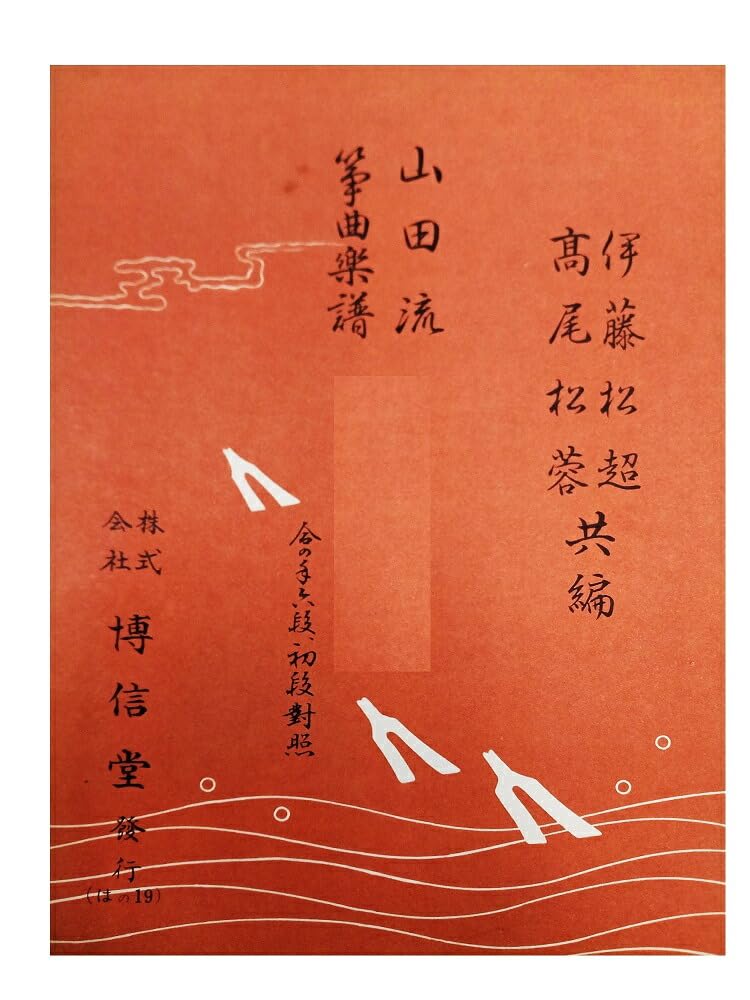 伊藤松超
髙尾松蓉
共編
山田流
箏曲樂譜
合の手六段、初段對照
株式
会社
博信堂發行
(はの19)